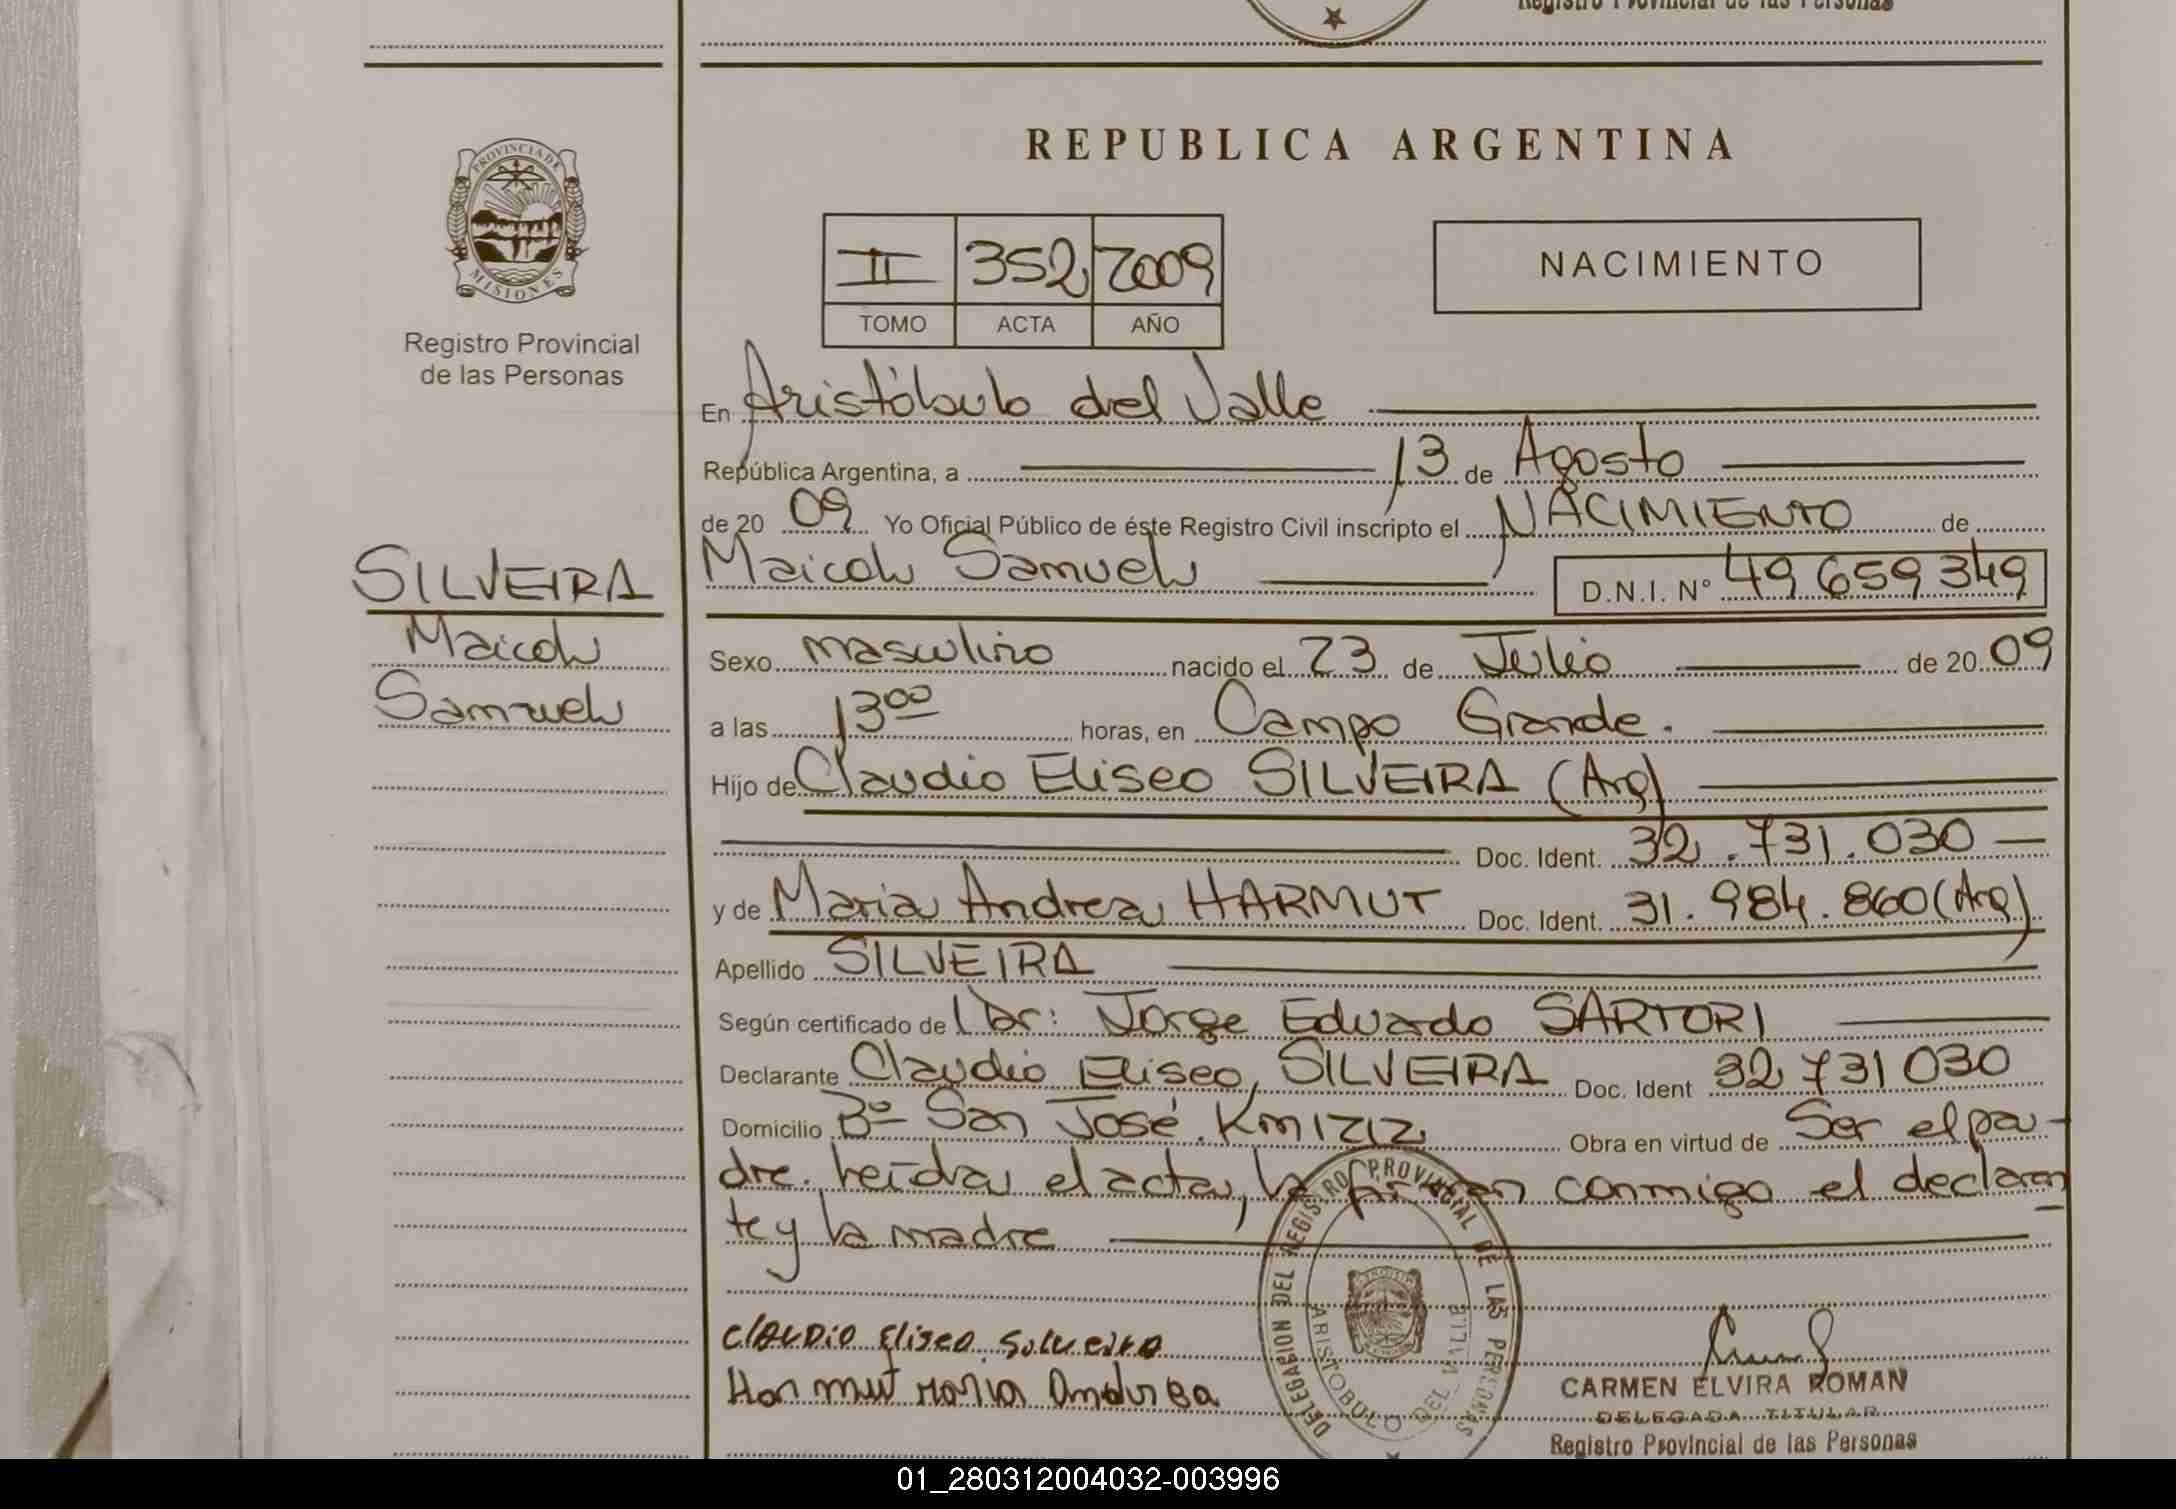 Registro Provincial de las Personas
REPUBLICA ARGENTINA
PROVINCIA DE
MISIONES
Registro Provincial
de las Personas
II 352 2009
TOMO ACTA AÑO
NACIMIENTO
En Aristóbulo del Valle
República Argentina, a 13 de Agosto
de 20 09 Yo Oficial Público de éste Registro Civil inscripto el NACIMIENTO de
SILVEIRA
Maicol
Samuel
Maicol Samuel D.N.I. N° 49 659 349
Sexo masculino nacido el 23 de Julio de 20 09
a las 13 00 horas, en Campo Grande.
Hijo de Claudio Eliseo SILVEIRA (Arg)
Doc. Ident. 32.731.030
y de Maria Andrea HARMUT Doc. Ident. 31.984.860 (Arg)
Apellido SILVEIRA
Según certificado de l Dr: Jorge Eduardo SARTORI
Declarante Claudio Eliseo, SILVEIRA Doc. Ident 32 731 030
Domicilio Bº San José. Km 1212 Obra en virtud de Ser el pa-
dre. Leída el acta, la firman conmigo el declaran
te y la madre
DELEGACION DEL REGISTRO PROVINCIAL DE LAS PERSONAS
ARISTOBULO DEL VALLE
Claudio Eliseo Silveira
Harmut Maria Andrea
CARMEN ELVIRA ROMAN
DELEGADA TITULAR
Registro Provincial de las Personas
01_280312004032-003996